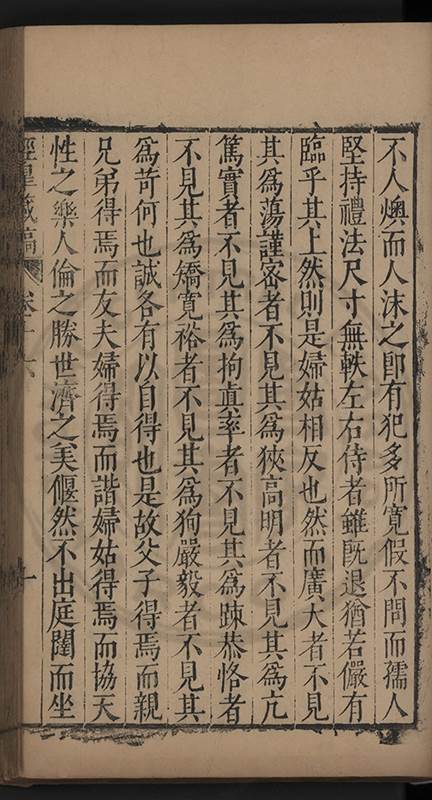 不人燠而人沫之卽有犯多所寬假不問而孺人
堅持禮法尺寸無軼左右侍者雖旣退猶若儼有
臨乎其上然則是婦姑相反也然而廣大者不見
其爲蕩謹密者不見其爲狹高明者不見其爲亢
篤實者不見其爲拘眞率者不見其爲踈恭恪者
不見其爲矯寬裕者不見其爲狥嚴毅者不見其
爲苛何也誠各有以自得也是故父子得焉而親
兄弟得焉而友夫婦得焉而諧婦姑得焉而協天
性之樂人倫之勝世濟之美偃然不出庭闈而坐
涇臯藏稿 卷十六